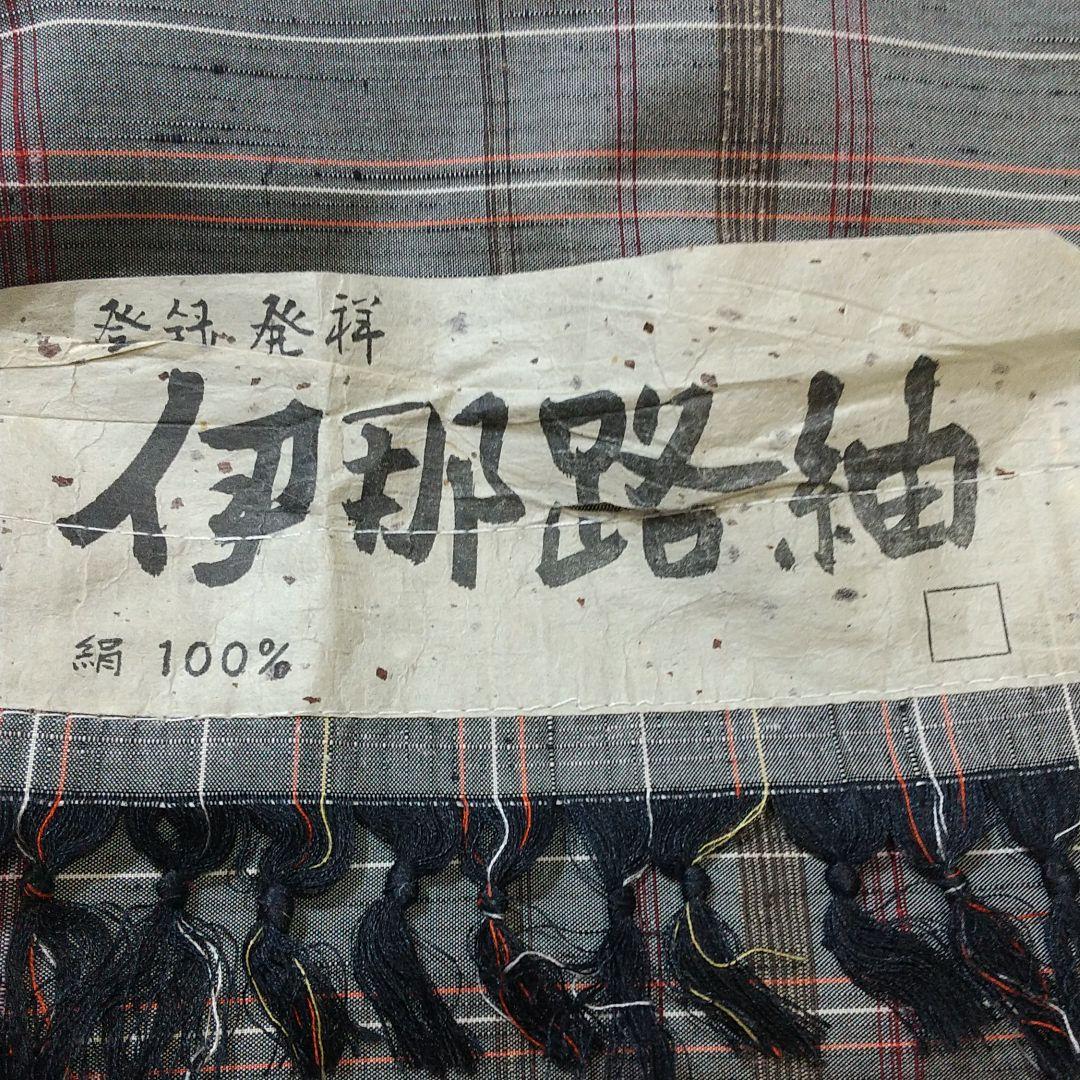 登録 発祥
伊那路紬
絹 100%